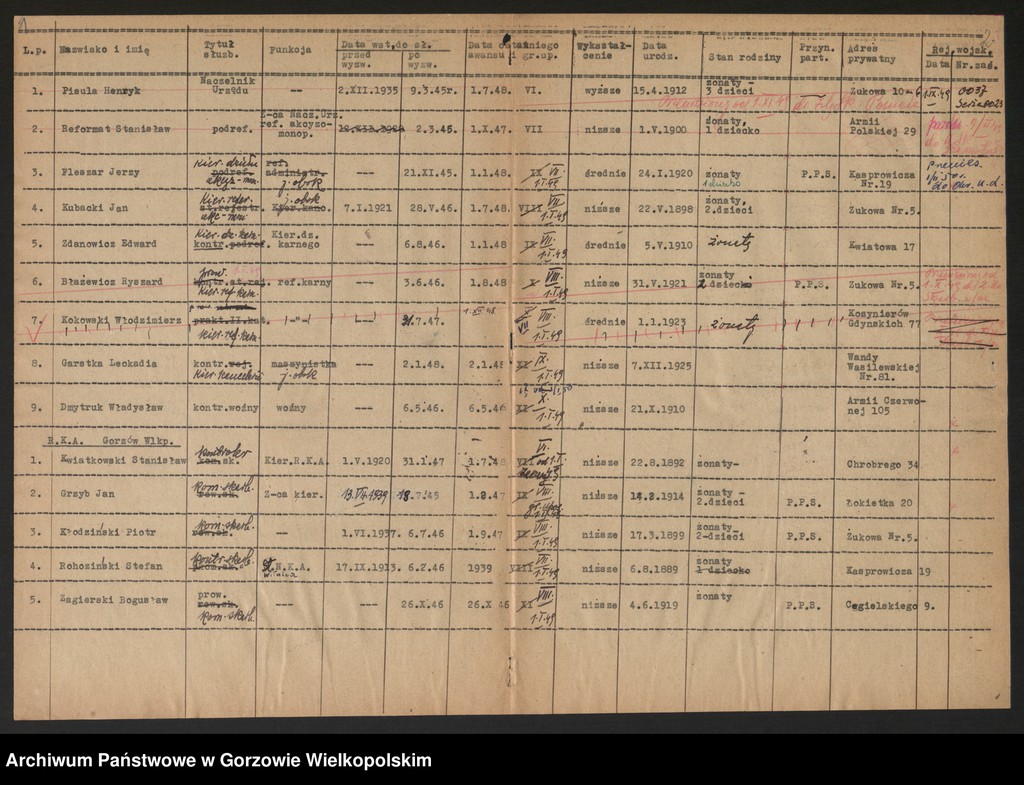 L.p. Nazwisko i imię Tytuł służb. Funkcja Data wst.do sł. przed wyzw. po wyzw. Data ostatniego awansu i gr.up. Wykształcenie Data urodz. Stan rodziny Przyn. part. Adres prywatny Rej.wojsk. Data Nr.zaś.
1. Pisula Henryk Naczelnik Urzędu -- 2.XII.1935 9.3.45r. 1.7.48. VI. wyższe 15.4.1912 żonaty- 3 dzieci Żukowa 10-6 1.IX.49 0037 Seria 0023
2. Reformat Stanisław podref. Z-ca Nacz.Urz. ref. akcyzo-monop. 2.3.45. 1.X.47. VII niższe 1.V.1900 żonaty, 1 dziecko Armii Polskiej 29
3. Fleszar Jerzy Kier. działu podref. ref. administr. j. obok --- 21.XI.45. 1.1.48. IX VII. 1.I.49 średnie 24.I.1920 żonaty P.P.S. Kasprowicza Nr.19
4. Kubacki Jan Kier. refer. st.refestr. Kier.kanc. 7.I.1921 28.V.46. 1.7.48. VIII VII. 1.I.49 niższe 22.V.1898 żonaty, 2.dzieci Żukowa Nr.5.
5. Zdanowicz Edward kontr. podref. Kier.dz. karnego --- 6.8.46. 1.1.48 IX VII. 1.I.49 średnie 5.V.1910 żonaty Kwiatowa 17
6. Błażewicz Ryszard prow. Kier. ref. ref.karny --- 3.6.46. 1.8.48 X VIII. 1.I.49 niższe 31.V.1921 żonaty 2 dzieci P.P.S. Żukowa Nr.5.
7. Kokowski Włodzimierz prakt.II.kat. Kier. ref. -"- --- 31.7.47. 1.XII.48 VIII. 1.I.49 średnie 1.1.1923 żonaty Kosynierów Gdyńskich 77
8. Garstka Leokadia kontr.rej. Kier. kancelarii maszynistka j. obok --- 2.1.48. 2.1.48 XI IX. 1.I.49 niższe 7.XII.1925 Wandy Wasilewskiej Nr.81.
9. Dmytruk Władysław kontr.woźny woźny --- 6.5.46. 6.5.46 XI X. 1.I.49 niższe 21.X.1910 Armii Czerwonej 105
R.K.A. Gorzów Wlkp.
1. Kwiatkowski Stanisław kontroler kom.sk. Kier.R.K.A. 1.V.1920 31.1.47 1.7.48 VII VI. niższe 22.8.1892 żonaty- Chrobrego 34
2. Grzyb Jan kom. skarb. Z-ca kier. 13.VI.1939 18.7.45 1.8.47 IX VIII. niższe 14.2.1914 żonaty - 2.dzieci P.P.S. Łokietka 20
3. Kłodziński Piotr kom. skarb. -- 1.VI.1937. 6.7.46 1.9.47 IX VIII. 1.I.49 niższe 17.3.1899 żonaty 2-dzieci P.P.S. Żukowa Nr.5.
4. Rohoziński Stefan kontr. skarb. R.K.A. 17.IX.1913. 6.2.46 1939 VIII VII. 1.I.49 niższe 6.8.1889 żonaty 1 dziecko Kasprowicza 19
5. Zagierski Bogusław prow. rew.sk. kom. skarb. -- --- 26.X.46 26.X 46 XI VIII. 1.I.49 niższe 4.6.1919 żonaty P.P.S. Cegielskiego 9.
Archiwum Państwowe w Gorzowie Wielkopolskim